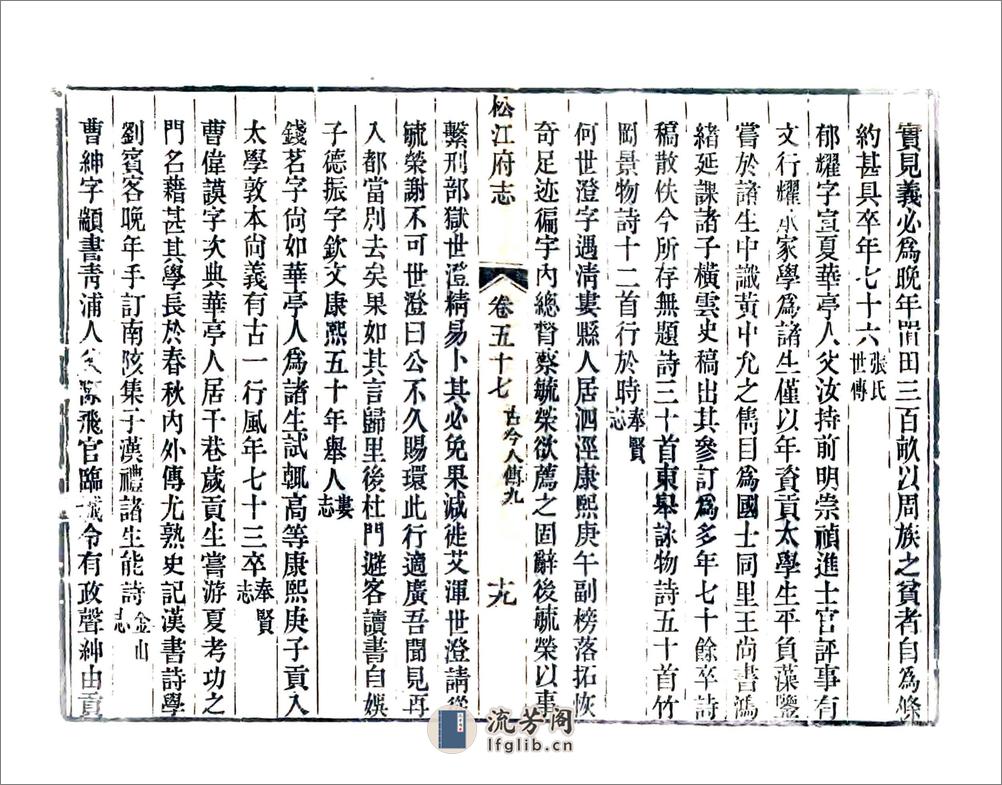 實見義必爲晚年置田三百畝以周族之貧者自爲條
約甚具卒年七十六張氏世傳
郁耀字宣夏華亭人父汝持前明崇禎進士官評事有
文行耀承家學爲諸生僅以年資貢太學生平負藻鑒
嘗於諸生中識黃中允之雋目爲國士同里王尚書鴻
緒延課諸子橫雲史稿出其參訂爲多年七十餘卒詩
稿散佚今所存無題詩三十首東皋詠物詩五十首竹
岡景物詩十二首行於時奉賢志
何世澄字遇清婁縣人居泗涇康熙庚午副榜落拓恢
奇足迹徧宇內總督蔡毓榮欲薦之固辭後毓榮以事
松江府志 卷五十七 古今人傳九 十九
繫刑部獄世澄精易卜其必免果減徙艾渾世澄請從
毓榮謝不可世澄曰公不久賜環此行適廣吾聞見再
入都當別去矣果如其言歸里後杜門避客讀書自娛
子德振字欽文康熙五十年舉人婁志
錢茗字尙如華亭人爲諸生試輒高等康熙庚子貢入
太學敦本尙義有古一行風年七十三卒奉賢志
曹偉謨字次典華亭人居干巷歲貢生嘗游夏考功之
門名藉甚其學長於春秋內外傳尤熟史記漢書詩學
劉賓客晚年手訂南陔集子漢禮諸生能詩金山志
曹紳字顓書靑浦人父 飛官臨 令有政聲紳由貢
流芳阁
lfglib.cn